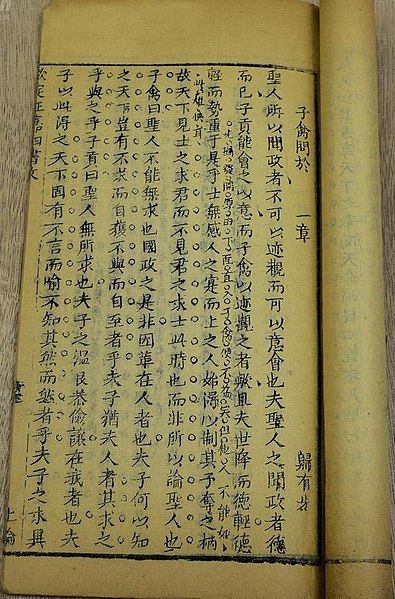 子禽問於 一章 歸有光
聖人所以聞政者不可以迹觀而可以意會也夫聖人之聞政者德
而已子貢能會之以意而子禽以迹觀之者歟且夫世降而德輕德
輕而勢重于是乎士無感人之實而上之人始得以制其予奪之柄
故天下見士之求君而不見君之求士此時也而非所以論聖人也
子禽曰聖人不能無求也國政之是非國華在人者也夫子何以知
之天下豈有不求而自獲不與而自至者乎夫子猶夫人者其求之
乎與之乎子貢曰聖人無所求也夫子之溫良恭儉讓在我者也夫
子以此得之天下固有不言而喻不知其然而然者乎夫子之求異
欽定正嘉四書文 上論